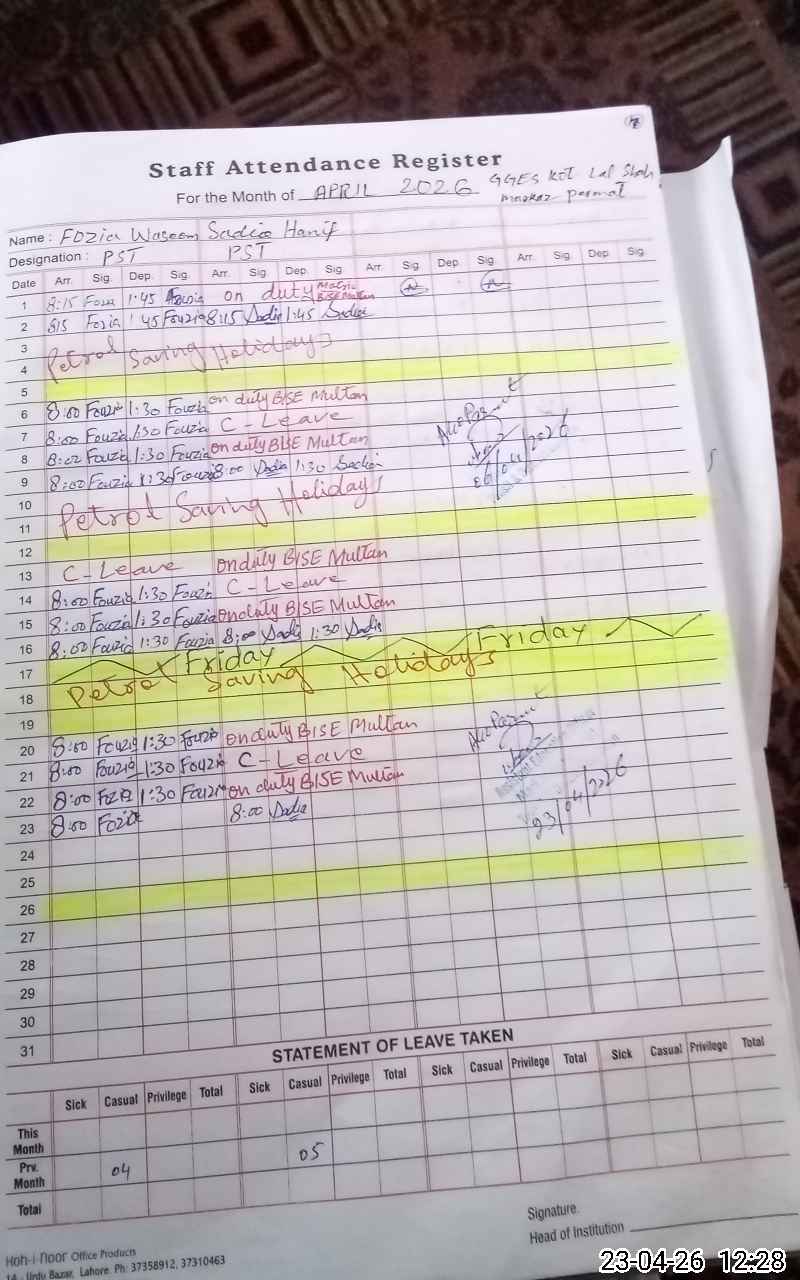 Staff Attendance Register
For the Month of APRIL 2026 GGES Kot Lal Shah
markaz permat
Name : Fozia Waseem Sadia Hanif
Designation : PST PST
Date Arr. Sig. Dep. Sig. Arr. Sig. Dep. Sig. Arr. Sig. Dep. Sig. Arr. Sig. Dep. Sig.
1 8:15 Fozia 1:45 Fouzia on duty Matric BISE Multan
2 815 Fozia 1:45 Fouzia 8:15 Sadia 1:45 Sadia
3 Petrol Saving Holidays
4
5
6 8:00 Fouzia 1:30 Fouzia on duty BISE Multan
7 8:00 Fouzia 1:30 Fouzia C-Leave
8 8:00 Fouzia 1:30 Fouzia on duty BISE Multan
9 8:00 Fouzia 1:30 Fouzia 8:00 Sadia 1:30 Sadia
06/04/2026
10 Petrol Saving Holidays
11
12
13 C-Leave on duty BISE Multan
14 8:00 Fouzia 1:30 Fouzia C-Leave
15 8:00 Fouzia 1:30 Fouzia on duty BISE Multan
16 8:00 Fouzia 1:30 Fouzia 8:00 Sadia 1:30 Sadia
17 Friday Friday
18 Petrol Saving Holidays
19
20 8:00 Fouzia 1:30 Fouzia on duty BISE Multan
21 8:00 Fouzia 1:30 Fouzia C-Leave
22 8:00 Fozia 1:30 Fouzia on duty BISE Multan
23 8:00 Fozia 8:00 Sadia
23/04/2026
24
25
26
27
28
29
30
31
STATEMENT OF LEAVE TAKEN
Sick Casual Privilege Total Sick Casual Privilege Total Sick Casual Privilege Total Sick Casual Privilege Total
This Month
Prv. Month 04 05
Total
Signature.
Head of Institution
Koh-i-noor Office Products
14 - Urdu Bazar, Lahore. Ph: 37358912, 37310463
23-04-26 12:28